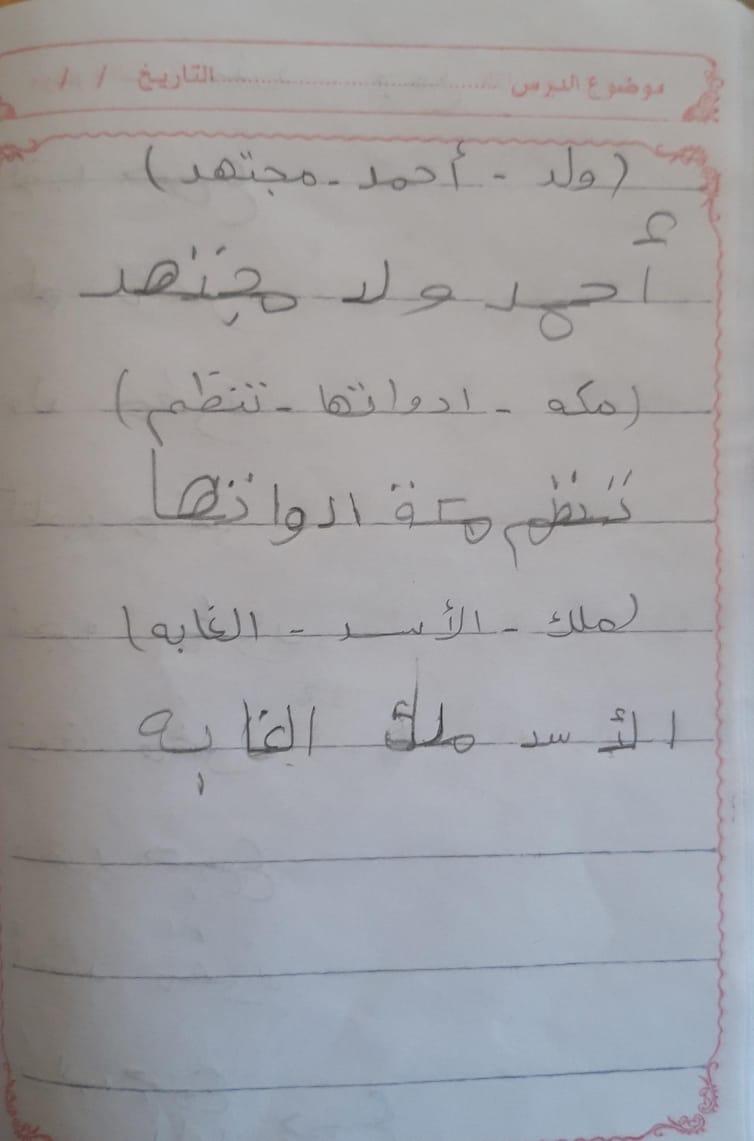 موضوع الدرس ........................ التاريخ / /
(ولد - أحمد - مجتهد)
أحمد ولد مجتهد
(مكه - ادواتها - تنظم)
تنظم مكة ادواتها
(ملك - الأسد - الغابه)
الأسد ملك الغابه